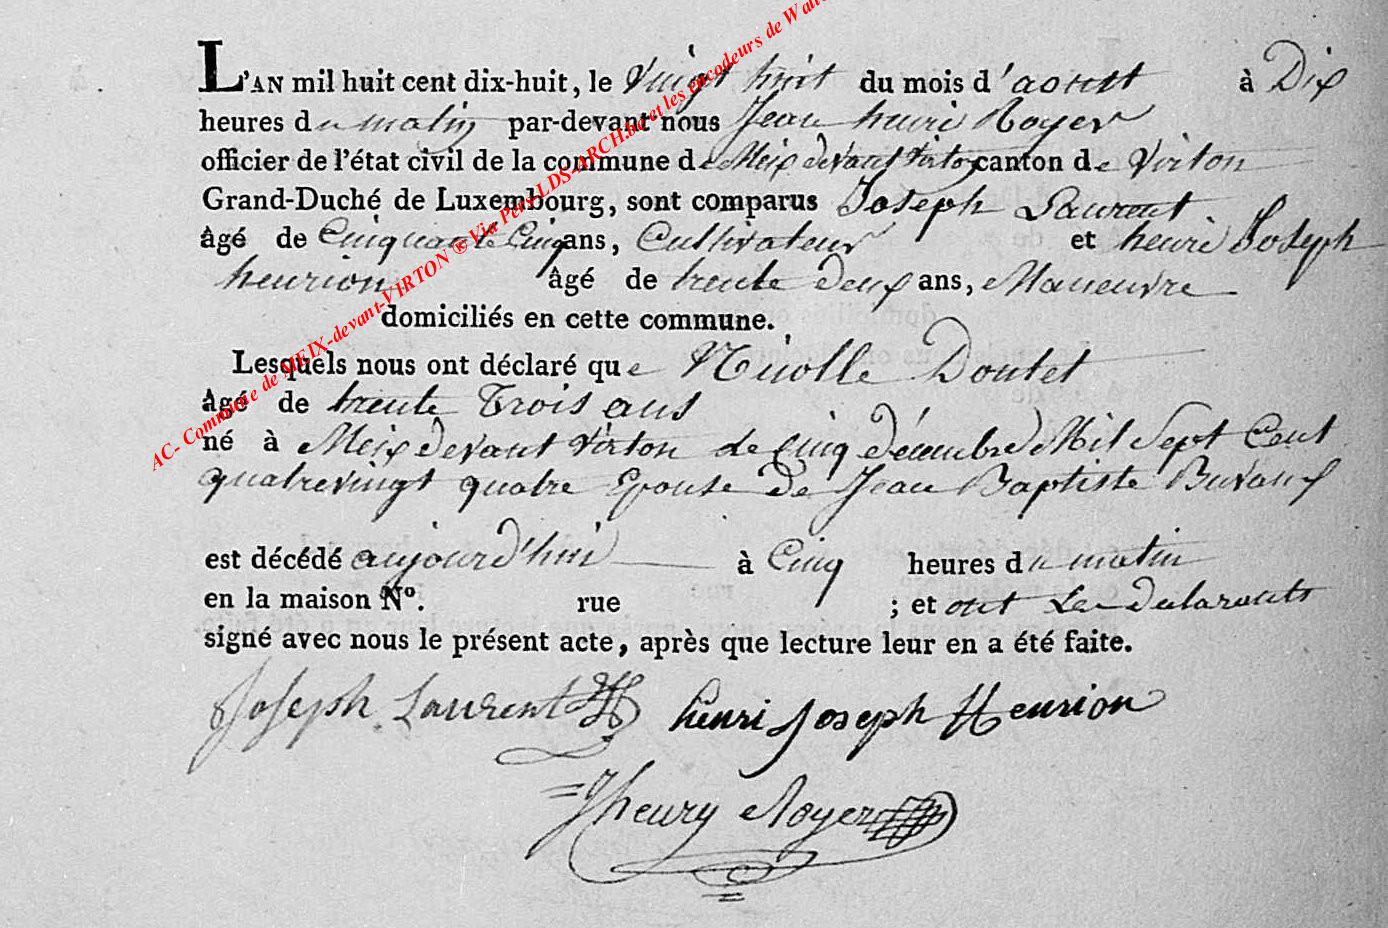 L'AN mil huit cent dix-huit, le Vingt huit du mois d'aoust à Dix
heures du matin par-devant nous Jean henri Royer
officier de l'état civil de la commune de Meix devant virton canton de Virton
Grand-Duché de Luxembourg, sont comparus Joseph Laurent
âgé de Cinquante Cinq ans, Cultivateur et henri Joseph
henrion âgé de trente deux ans, Maneuvre
domiciliés en cette commune.
Lesquels nous ont déclaré que Nicolle Doutet
âgé de trente trois ans
né à Meix devant virton le cinq décembre Mil Sept Cent
quatrevingt quatre Epouse de Jean Baptiste Buvaux
est décédé aujourd'hui à Cinq heures du matin
en la maison N°. rue ; et ont Les declarants
signé avec nous le présent acte, après que lecture leur en a été faite.
Joseph Laurent henri Joseph Henrion
Jhenry Royer
AC- Commune de MEIX-devant-VIRTON ® Via Pers-LDS-ARCH.be et les encodeurs de